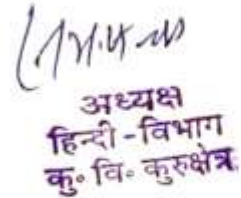 अध्यक्ष
हिन्दी-विभाग
कु० वि० कुरुक्षेत्र